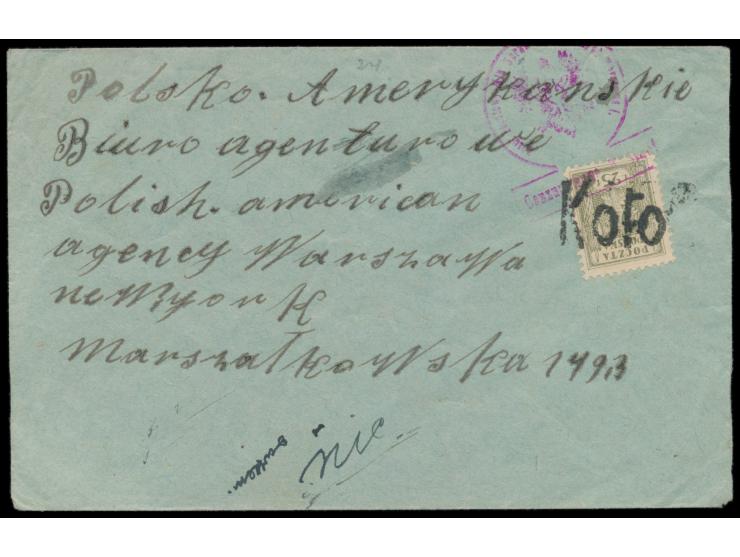 Polsko. Amerykanskie
Biuro agenturowe
Polish. american
agency Warszawa
neWyork
Marszałkowska 149,3
Koło
POCZTA
25
nic.